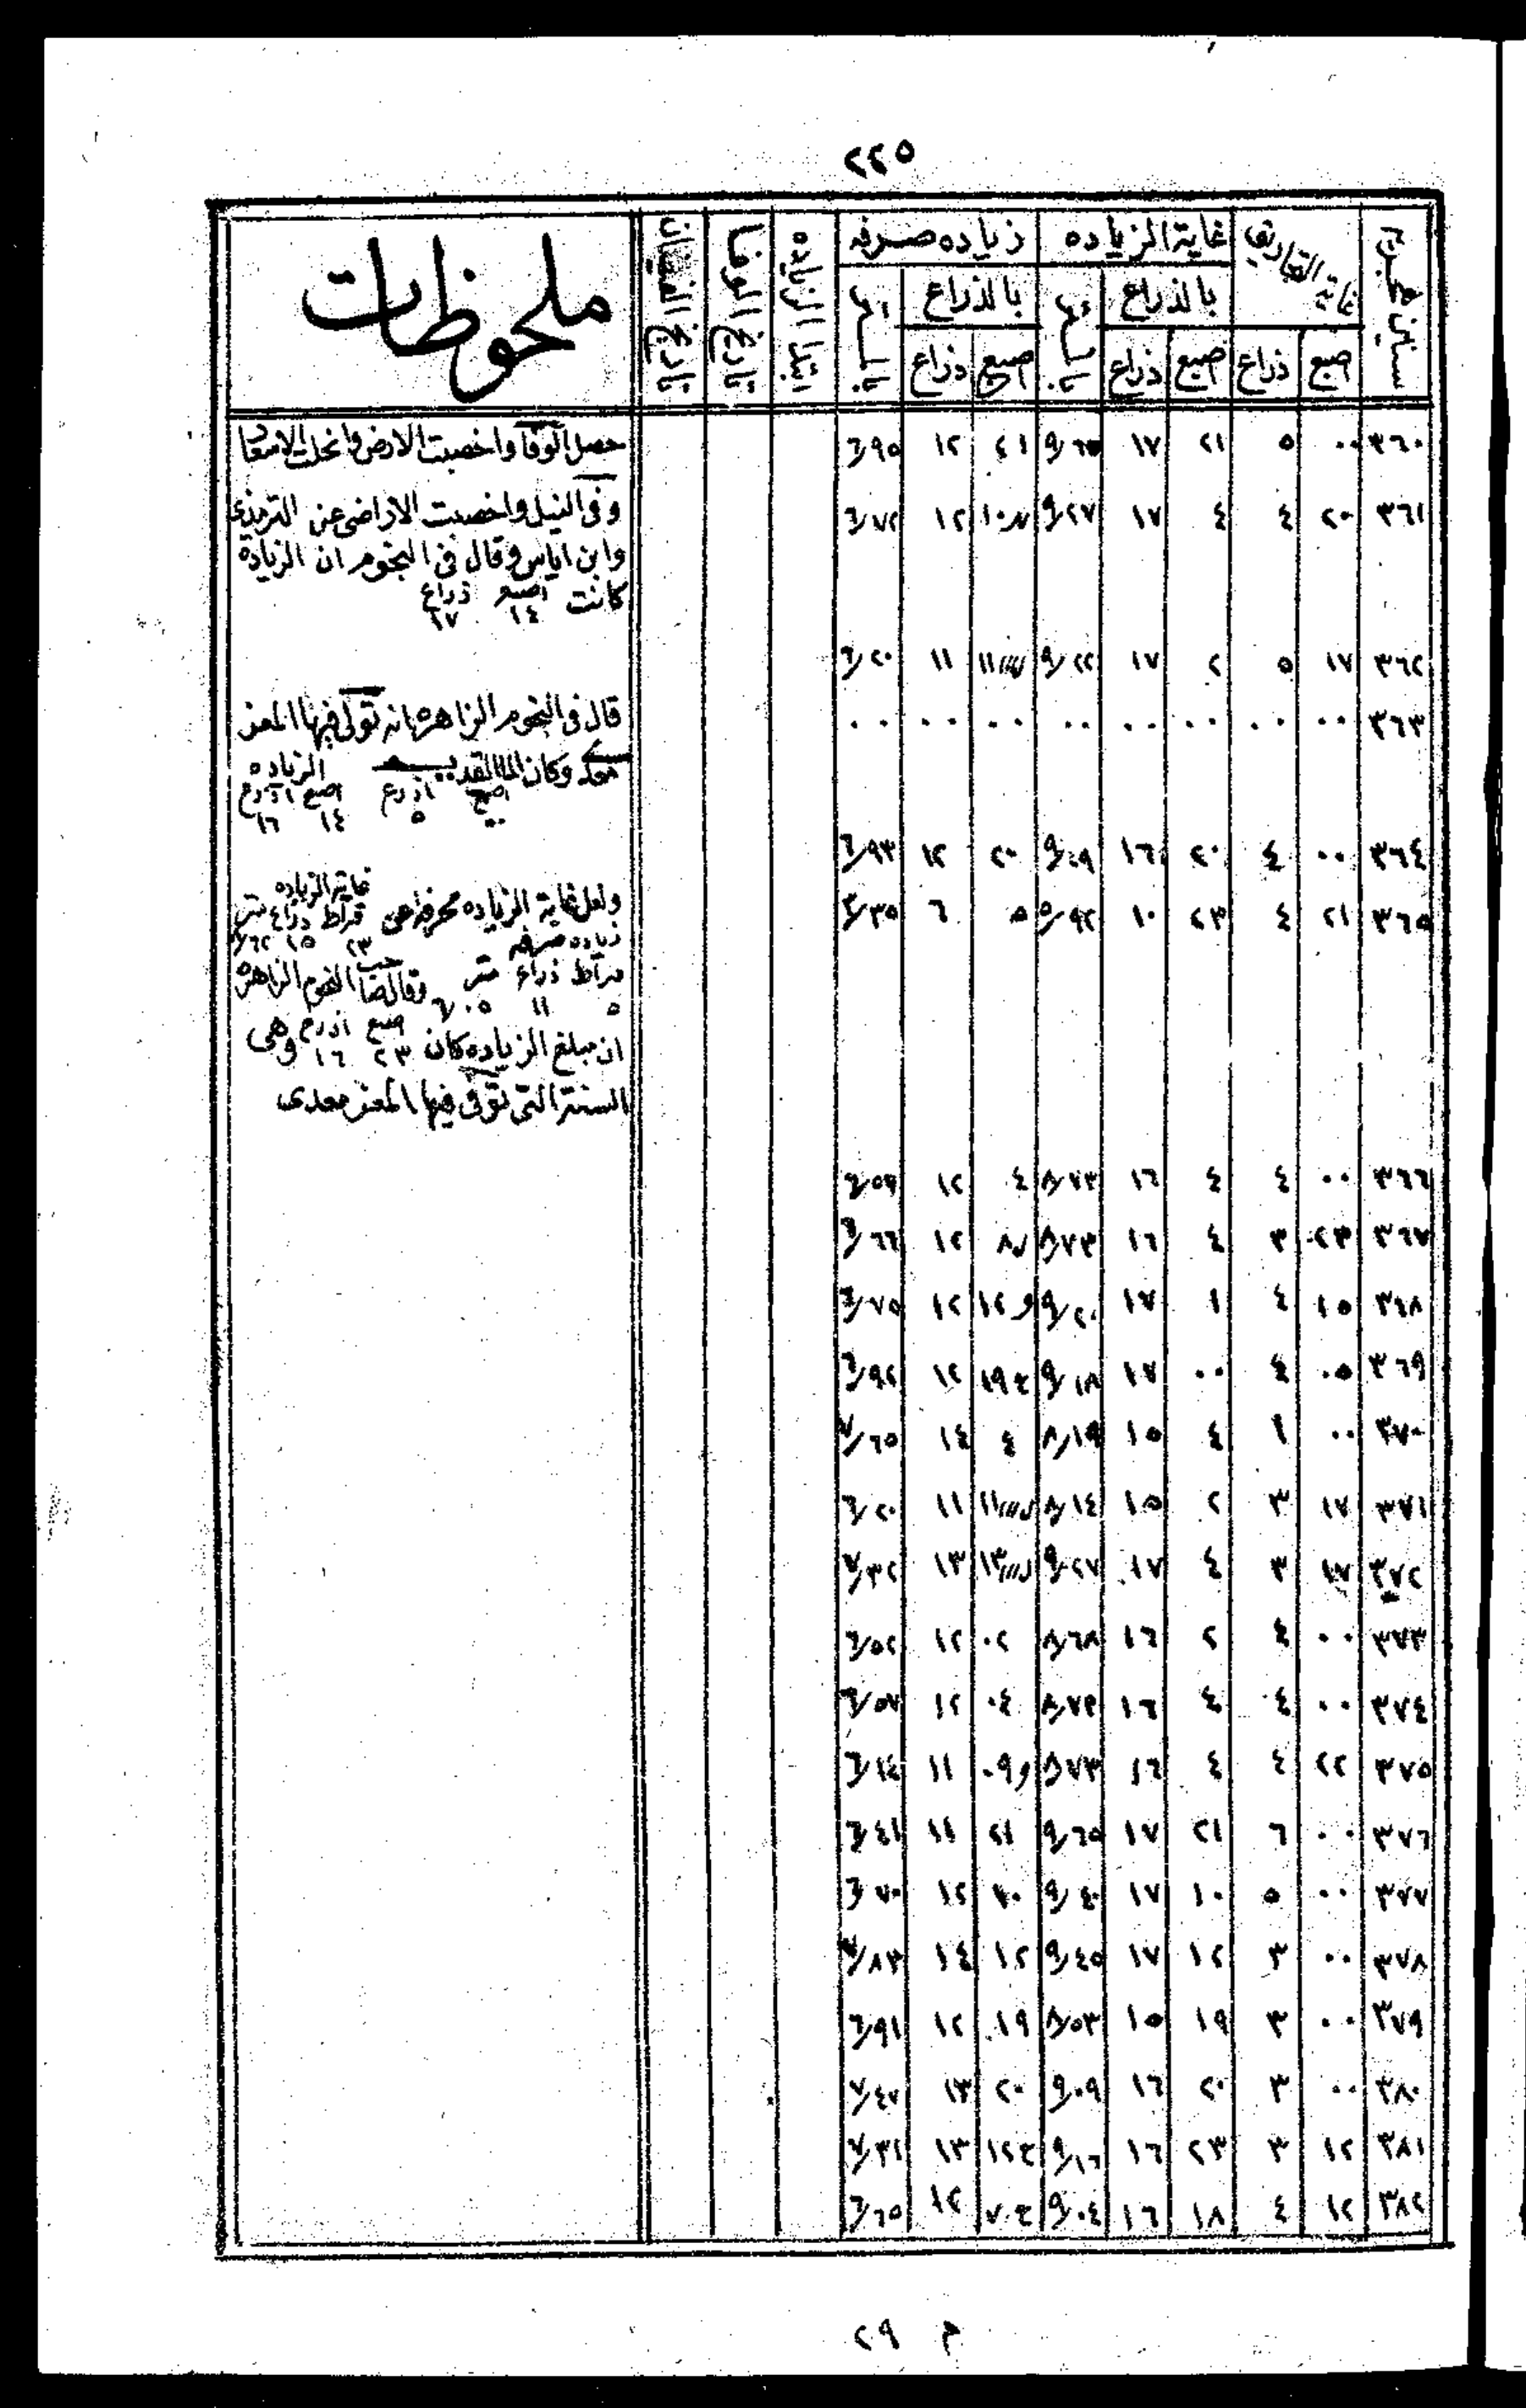 ٢٢٥
سنين هجرية غاية التحاريق غاية الزياده زياده صرفه ابتدا الزياده تاريخ الوفا تاريخ الفيضان ملحوظات
بالذراع بالمتر بالذراع بالمتر
اصبع ذراع اصبع ذراع اصبع ذراع
٣٦٠ ٠٠ ٥ ٢١ ١٧ ٩٫٦٥ ٢١ ١٢ ٦٫٩٥ حصل الوفا واخصبت الارض وانحلت الاسعار
٣٦١ ٢٠ ٤ ٤ ١٧ ٩٫٢٧ ١٠ ١٢ ٦٫٧٢ وفى النيل واخصبت الاراضى عن الترمذى
وابن اياس وقال فى النجوم ان الزيادة
كانت اصبع ذراع
١٤ ١٧
٣٦٢ ١٧ ٥ ٢ ١٧ ٩٫٢٢ ١١ ١١ ٦٫٢٠
٣٦٣ ٠٠ ٠٠ ٠٠ ٠٠ ٠٠ ٠٠ ٠٠ ٠٠ قال فى النجوم الزاهره انه تولى فيها المعز
معد وكان الما القديم الزياده
اصبع اذرع اصبع اذرع
٠٠ ٥ ١٤ ١٦
٣٦٤ ٠٠ ٤ ٢٠ ١٦ ٩٫٠٩ ٢٠ ١٢ ٦٫٩٣
٣٦٥ ٢١ ٤ ٢٣ ١٠ ٥٫٩٢ ٥ ٦ ٣٫٣٥ ولعل غاية الزياده محرفه عن غاية الزياده
قراط ذراع متر
٢٣ ١٥
زياده صرفه
قراط ذراع متر وقال صاحب النجوم الزاهره
٥ ١١ ٦٫٠٥
ان مبلغ الزياده كان اصبع اذرع ٢٣ ١٦ وهى
السنة التى توفى فيها المعز معدى
٣٦٦ ٠٠ ٤ ٤ ١٦ ٨٫٧٣ ٤ ١٢ ٦٫٥٧
٣٦٧ ٢٣ ٣ ٤ ١٦ ٨٫٧٣ ٨ ١٢ ٦٫٦٦
٣٦٨ ١٥ ٤ ١ ١٧ ٩٫٢٠ ١٢ ١٢ ٦٫٧٥
٣٦٩ ٠٥ ٤ ٠٠ ١٧ ٩٫١٨ ١٩ ١٢ ٦٫٩٢
٣٧٠ ٠٠ ١ ٤ ١٥ ٨٫١٩ ٤ ١٤ ٧٫٦٥
٣٧١ ١٧ ٣ ٢ ١٥ ٨٫١٤ ١١ ١١ ٦٫٢٠
٣٧٢ ١٧ ٣ ٤ ١٧ ٩٫٢٧ ١٣ ١٣ ٧٫٣٢
٣٧٣ ٠٠ ٤ ٢ ١٦ ٨٫٦٨ ٠٢ ١٢ ٦٫٥٢
٣٧٤ ٠٠ ٤ ٤ ١٦ ٨٫٧٣ ٠٤ ١٢ ٦٫٥٧
٣٧٥ ٢٢ ٤ ٤ ١٦ ٨٫٧٣ ٠٩ ١١ ٦٫١٤
٣٧٦ ٠٠ ٦ ٢١ ١٧ ٩٫٦٥ ٢١ ١١ ٦٫٤١
٣٧٧ ٠٠ ٥ ١٠ ١٧ ٩٫٤٠ ١٠ ١٢ ٦٫٧٠
٣٧٨ ٠٠ ٣ ١٢ ١٧ ٩٫٤٥ ١٢ ١٤ ٧٫٨٣
٣٧٩ ٠٠ ٣ ١٩ ١٥ ٨٫٥٣ ١٩ ١٢ ٦٫٩١
٣٨٠ ٠٠ ٣ ٢٠ ١٦ ٩٫٠٩ ٢٠ ١٣ ٧٫٤٧
٣٨١ ١٢ ٣ ٢٣ ١٦ ٩٫١٦ ١٢ ١٣ ٧٫٣١
٣٨٢ ١٢ ٤ ١٨ ١٦ ٩٫٠٤ ٧ ١٢ ٦٫٦٥
م ٢٩